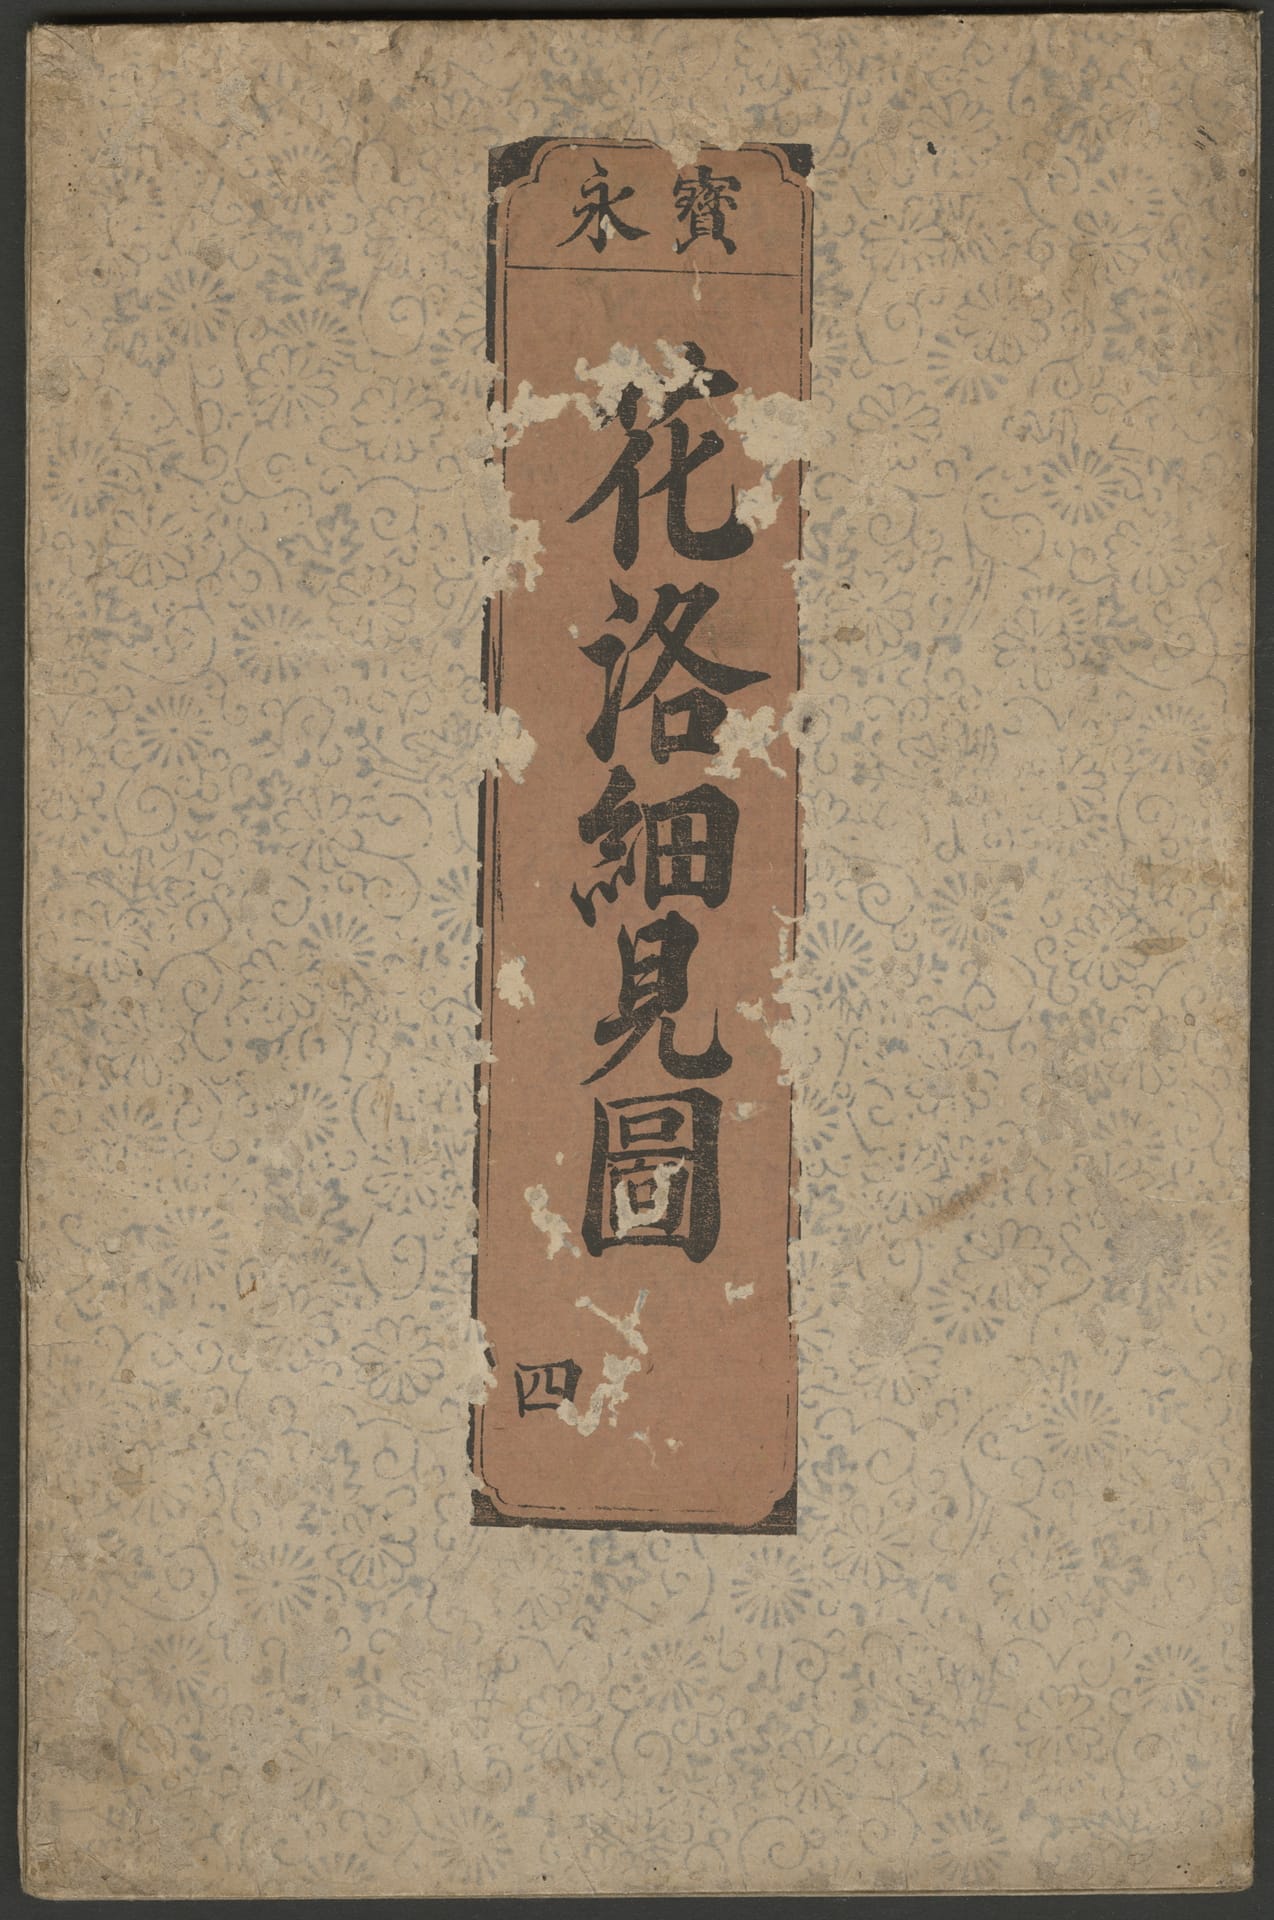 寶永
花洛細見圖
四